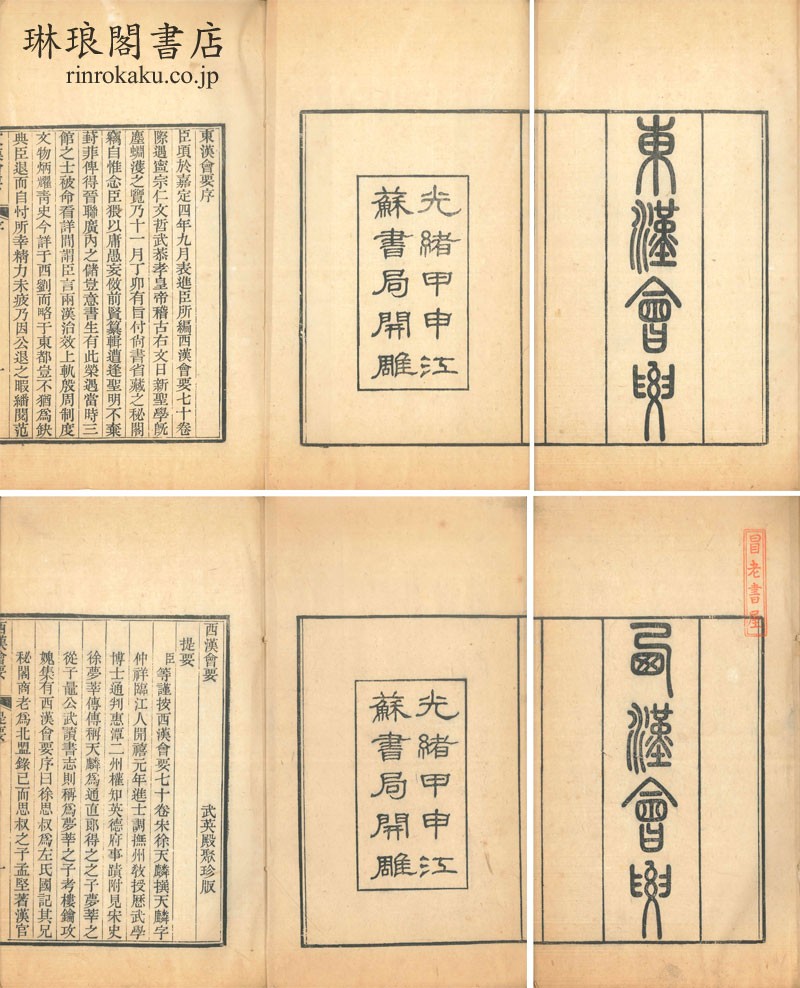 琳琅閣書店
rinrokaku.co.jp
東漢會要
光緒甲申江
蘇書局開雕
東漢會要序
臣頃於嘉定四年九月表進臣所編西漢會要七十卷
際遇寧宗仁文哲武恭孝皇帝稽古右文日新聖學旣
塵蠲濩之覽乃十一月丁卯有旨付尙書省藏之秘閣
竊自惟念臣猥以庸愚妄倣前賢纂輯遭逢聖明不棄
葑菲俾得晉聯廣內之儲豈意書生有此榮遇當時三
館之士被命看詳間謂臣言兩漢治效上軌殷周制度
文物炳耀靑史今詳于西劉而略于東都豈不猶爲缺
典臣退而自忖所幸精力未疲乃因公退之暇繙閱范
西漢會要
冒老書屋
光緒甲申江
蘇書局開雕
西漢會要
提要
武英殿聚珍版
臣等謹按西漢會要七十卷宋徐天麟撰天麟字
仲祥臨江人開禧元年進士調撫州敎授歷武學
博士通判惠潭二州權知英德府事蹟附見宋史
徐夢莘傳傳稱天麟爲通直郎得之之子夢莘之
從子晁公武讀書志則稱爲夢莘之子考樓鑰攻
媿集有西漢會要序曰徐思叔爲左氏國記其兄
秘閣商老爲北盟錄已而思叔之子孟堅著漢官